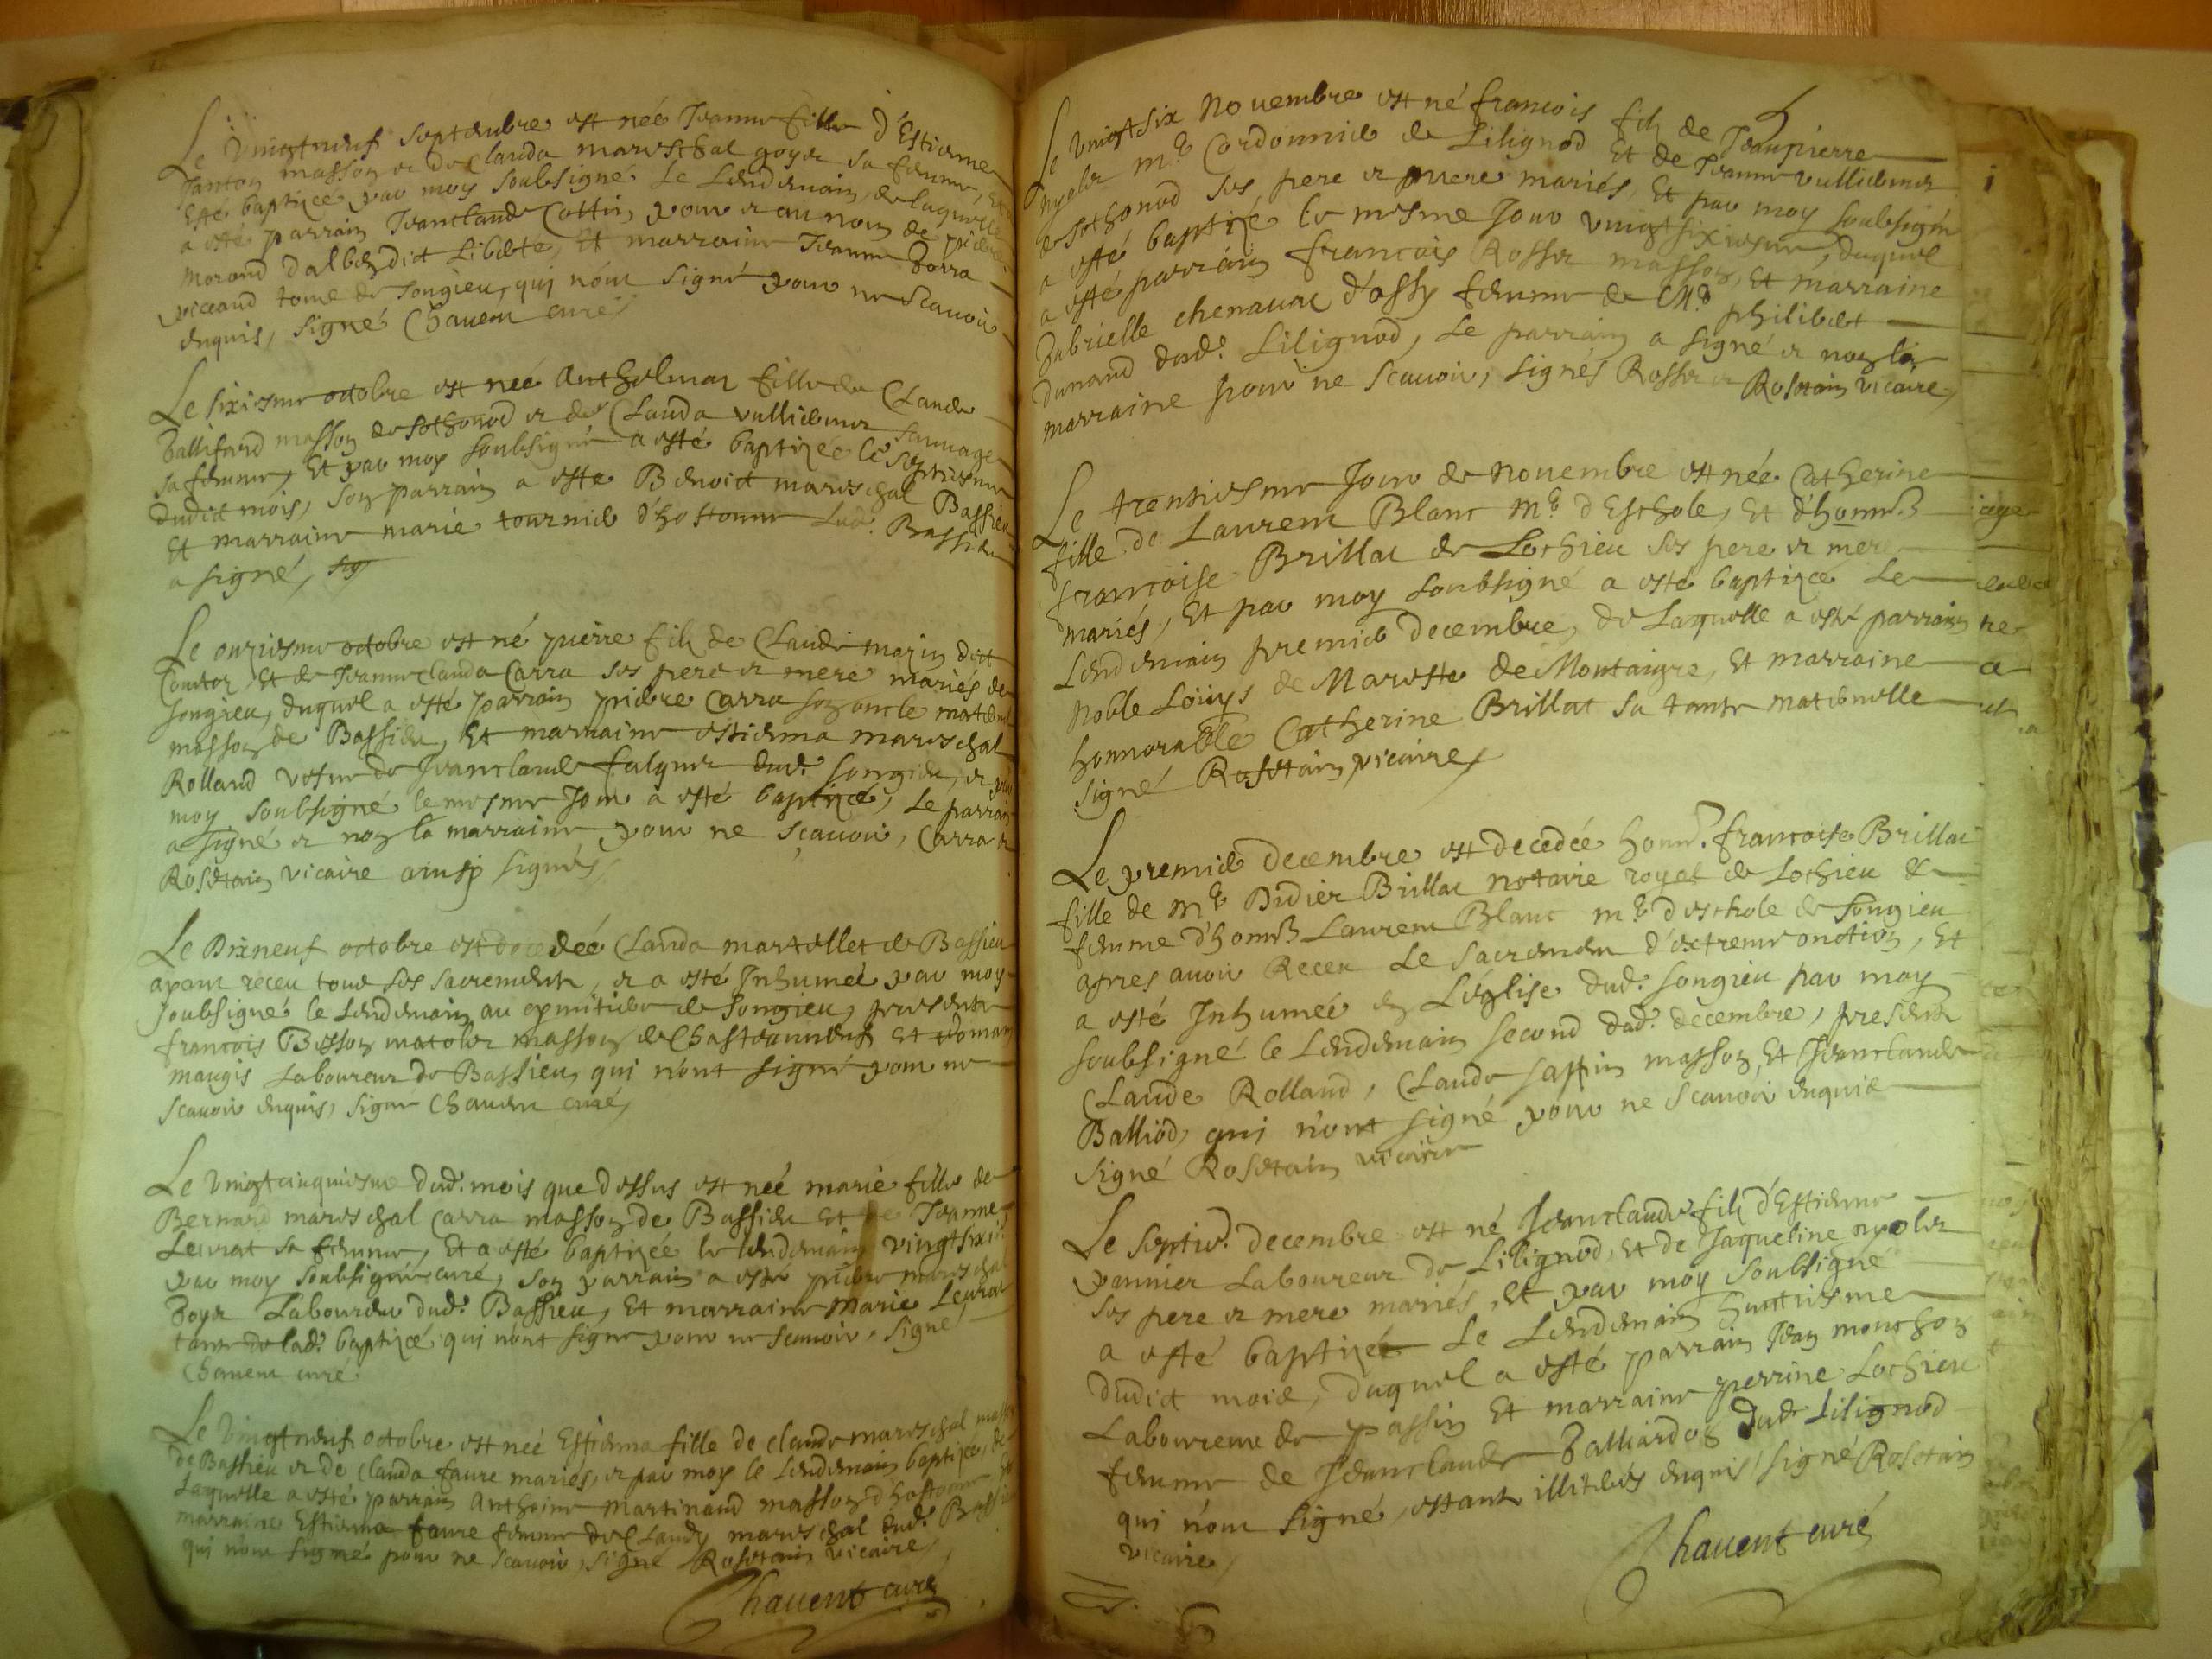 Le Vingtneuf septembre est née Jeanne fille d'Estienne
Janton masson et de Clauda mareschal goyet sa femme, Et a
esté baptizée par moy soubsigné le Lendemain, de laquelle
a esté parrain Jeanclaude Cottin pour et au nom de pierre
Morand d'alben dict Liberte, Et marraine Jeanne
tome de Songieu, qui n'ont signé pour ne scavoir
enquis, signé Chauent curé
Le sixiesme octobre est née Anthelmaz fille de Claude
Ballifard masson de sothonod et de Clauda vulliemer sauuage
sa femme, Et par moy soubsigné a esté baptizée le septiesme
dudict mois, son parrain a esté Benoict mareschal Bassieu
Et marraine marie tournier d'hostonne Lad. Bassieu
a signé, sig
Le onziesme octobre est né pierre filz de Claude marin dict
Et de Jeanne clauda Carra ses pere et mere mariés de
songieu, duquel a esté parrain pierre Carra son oncle maternel
masson de Bassieu, Et marraine estienna mareschal
Rolland vefue de Jeanclaude falquet dud. songieu, et par
moy soubsigné le mesme Jour a esté baptizé, Le parrain
a signé et non la marraine pour ne sçauoir, Carra et
Rosetain vicaire ainsy signés
Le Dixneuf octobre est decedée Clauda martellet de Bassieu
ayant receu tous ses sacrements, et a esté Inhumée par moy
soubsigné le Lendemain au cymitiere de Songieu, presents
francois Besson matelor masson de Chasteauneuf Et romain
maugis Laboureur de Bassieu, qui n'ont signé pour ne
scauoir enquis, signé Chauent curé,
Le vingtcinquiesme dud. mois que dessus est née marie fille de
Bernard mareschal Carra masson de Bassieu Et de Jeanne
Leurat sa femme, Et a esté baptizée le lendemain vingtsix
par moy soubsigné curé, son parrain a esté pierre mareschal
goyet Laboureur dud. Bassieu, Et marraine Marie Leurat
tante de lad. baptizée qui n'ont signé pour ne scauoir, signé
Chauent curé
Le Vingtneuf octobre est née Estienna fille de claude mareschal masson
de Bassieu et de Clauda faure mariés, et par moy le Lendemain baptizée, de
Laquelle a esté parrain Anthoine Martinand masson d'hostonne Et
marraine Estienna faure femme de Claude mareschal dud. Bassieu
qui n'ont signé pour ne scauoir, signé Rosetain vicaire,
Chauent curé
Le Vingtsix Nouembre est né francois filz de Jeanpierre
nycolet m.e Cordonnier de Lilignod Et de Jeanne vulliemer
de sothonod ses pere et mere mariés, Et par moy soubsigné
a esté baptizé le mesme Jour vingtsixiesme, duquel
a esté parrain francois Rosset masson, Et marraine
Gabrielle chenaual d'ossy femme de M.e philibert
dunand dud. Lilignod, Le parrain a signé et non la
marraine pour ne scauoir, signés Rosset et Rosetain vicaire,
Le trentiesme Jour de Nouembre est née Catherine
fille de Laurent Blanc m.e d'Eschole, Et d'honn.e
francoise Brillat de Lochieu ses pere et mere
mariés, Et par moy soubsigné a esté baptizée Le
Lendemain premier decembre, de Laquelle a esté parrain
Noble Loüys de Mareste de Montaigre, Et marraine
honnorable Catherine Brillat sa tante maternelle
signé Rosetain vicaire,
Le premier decembre est decedée honn.e francoise Brillat
fille de M.e Didier Brillat notaire royal de Lochieu &
femme d'honn.e Laurent Blanc m.e d'eschole de songieu
apres auoir Receu Le sacrement d'extreme onction, Et
a esté Inhumée en L'église dud. songieu par moy
soubsigné le Lendemain second dud. decembre, presents
Claude Rolland, Claude sappin masson, Et Jeanclaude
Balliod, qui n'ont signé pour ne scauoir enquis
signé Rosetain vicaire
Le septie. decembre est né Jeanclaude filz d'Estienne
pannier Laboureur de Lilignod, Et de Jaqueline nycolet
ses pere et mere mariés, Et par moy soubsigné
a esté baptizé Le Lendemain huictiesme
dudict mois, duquel a esté parrain Jean monthon
Laboureur de passin Et marraine perrine Lochieu
femme de Jeanclaude Balliardon dud. Lilignod
qui n'ont signé, estants illiterés enquis, signé Rosetain
vicaire,
Chauent curé